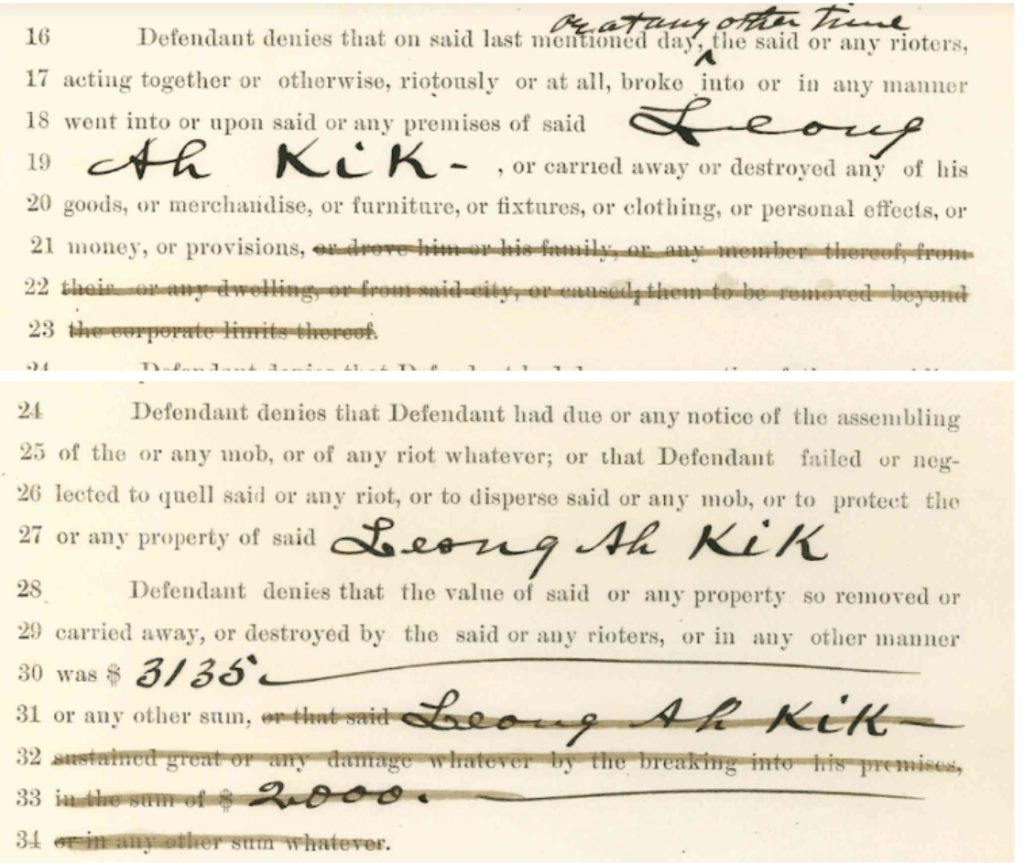 or at any other time
16 Defendant denies that on said last mentioned day, the said or any rioters,
17 acting together or otherwise, riotously or at all, broke into or in any manner
18 went into or upon said or any premises of said Leong
19 Ah Kik- , or carried away or destroyed any of his
20 goods, or merchandise, or furniture, or fixtures, or clothing, or personal effects, or
21 money, or provisions, or drove him or his family, or any member thereof, from
22 their or any dwelling, or from said city, or caused them to be removed beyond
23 the corporate limits thereof.
24 Defendant denies that Defendant had
24 Defendant denies that Defendant had due or any notice of the assembling
25 of the or any mob, or of any riot whatever; or that Defendant failed or neg-
26 lected to quell said or any riot, or to disperse said or any mob, or to protect the
27 or any property of said Leong Ah Kik
28 Defendant denies that the value of said or any property so removed or
29 carried away, or destroyed by the said or any rioters, or in any other manner
30 was $ 3135.
31 or any other sum, or that said Leong Ah Kik-
32 sustained great or any damage whatever by the breaking into his premises,
33 in the sum of $ 2000.
34 or in any other sum whatever.